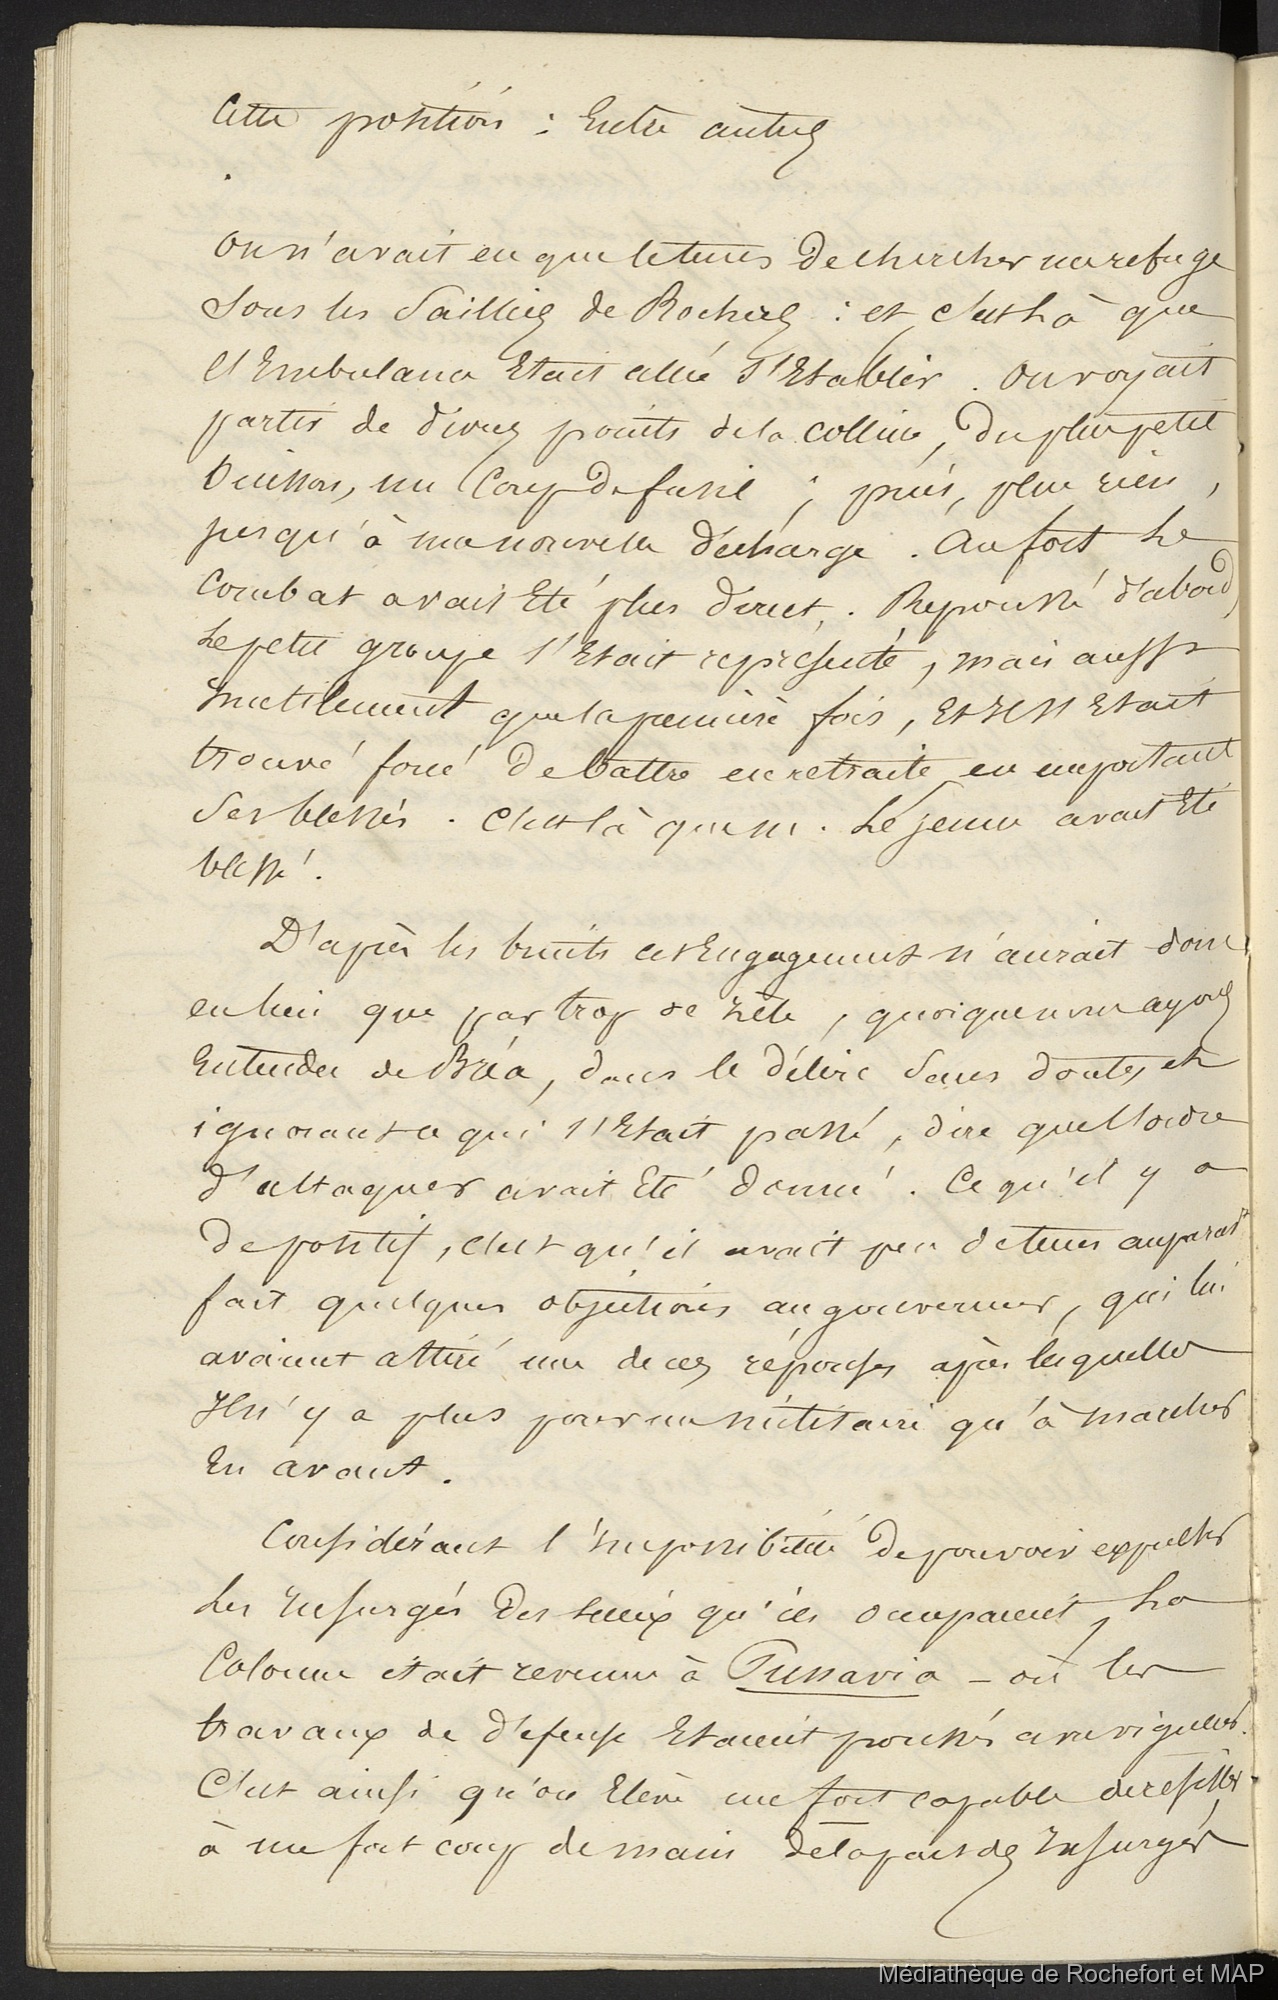 Cette position : Entre autres
On n'avait eu que le temps de chercher un refuge
sous les saillies de Rochers : et c'est là que
l'Embulance Etait allée s'Etablir . On voyait
partir de divers points de la colline, du plus petit
buisson, un Coup de fusil ; puis, plus rien,
jusqu'à une nouvelle décharge . Au fort Le
Combat avait Eté plus direct . Repoussé d'abord,
Le petit groupe s'Etait représenté, mais aussi
inutilement que la première fois, Et Il s'Etait
trouvé forcé de battre en retraite en emportant
ses blessés . C'est là que m. Lejeune avait Eté
blessé .
D'après les bruits cet Engagement n'aurait donc
eu lieu que par trop de zèle, quoique nous ayons
Entendu de Bréa, dans le délire sans doute, et
ignorant ce qui s'Etait passé, dire que l'ordre
d'attaquer avait Eté donné . Ce qu'il y a
de positif, c'est qu'il avait peu de temps auparavt
fait quelques objections au gouverneur, qui lui
avaient attiré une de ces réponses après lesquelles
Il n'y a plus pour un militaire qu'à marcher
En avant .
Considérant l'impossibilité de pouvoir expulser
Les Insurgés des lieux qu'ils occupaient, La
Colonne était revenue à Punavia – où les
travaux de défense Etaient poussés avec vigueur.
C'est ainsi qu'on Elève un fort capable de résister
à un fort coup de main de la part des Insurgés
Médiathèque de Rochefort et MAP